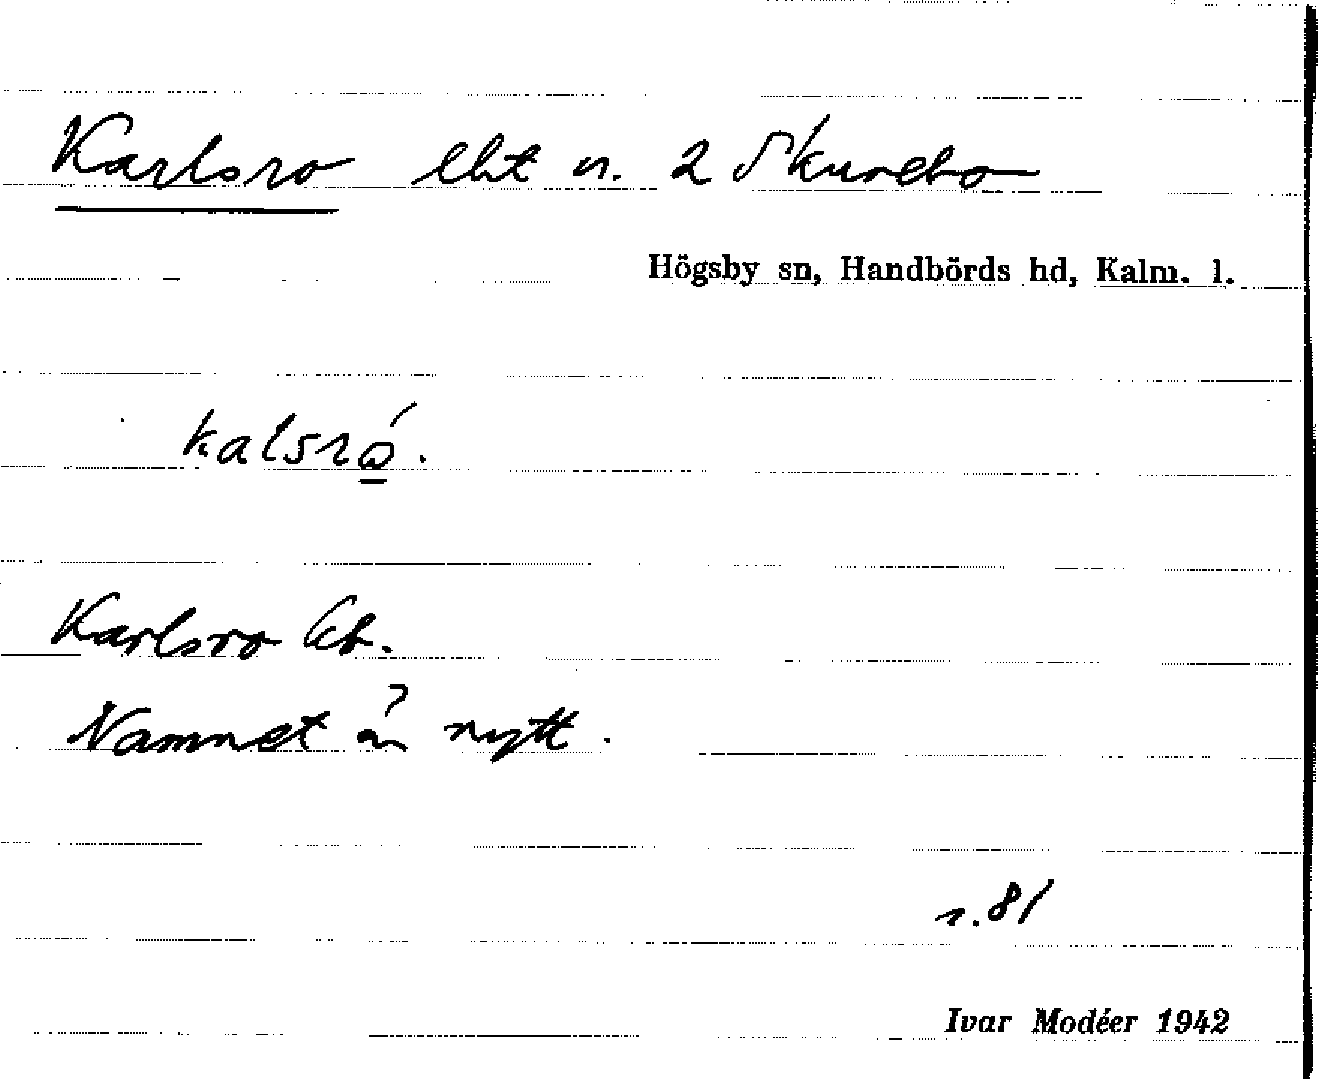 Karlsro lht n. 2 Skurebo
Högsby sn, Handbörds hd, Kalm. l.
kalsró̱.
Karlsro kb.
Namnet är nytt.
s. 81
Ivar Modéer 1942